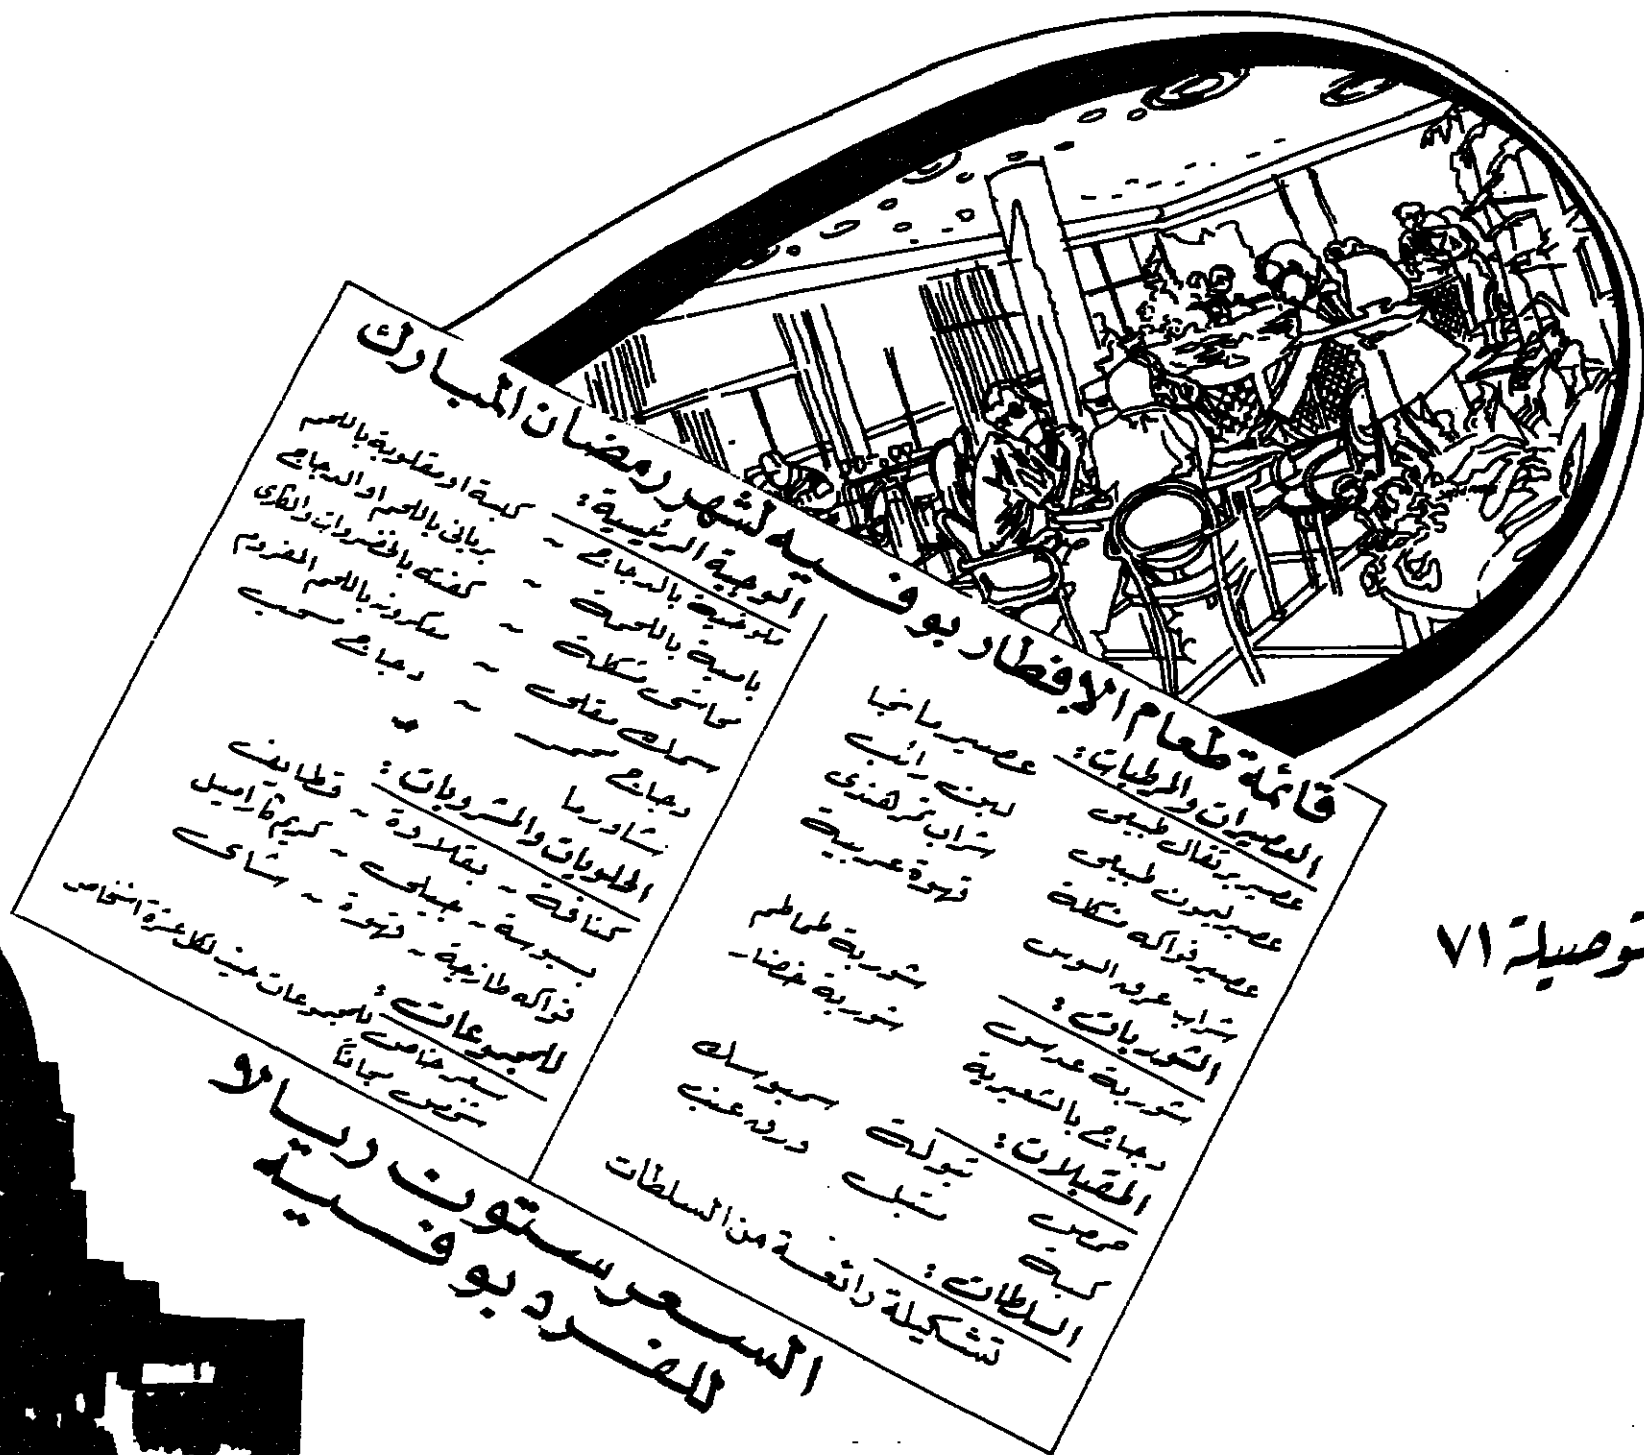 قائمة طعام الافطار بوفيه لشهر رمضان المبارك
العصيرات والمرطبات:
عصير برتقال طبيعى
عصير ليمون طبيعى
عصير فواكه مشكلة
شراب عرق السوس
عصير مانجا
لبن رائب
شراب تمر هندى
قهوة عربية
الشوربات:
شوربة عدس
دجاج بالشعيرية
شوربة طماطم
شوربة خضار
المقبلات:
حمص تبولة سمبوسك
كبة متبل ورق عنب
السلطات:
تشكيلة رائعة من السلطات
الوجبة الرئيسية:
ملوخية بالدجاج ~ كبسة او مقلوبة باللحم
بامية باللحمة ~ بريانى باللحم او الدجاج
محاشى مشكلة ~ كفتة بالخضروات والكارى
سمك مقلى ~ معكرونه باللحم المفروم
دجاج محمر ~ دجاج مسحب
شاورما
الحلويات والمشروبات:
كنافة ~ بقلاوة ~ قطايف
بسبوسة ~ جيلى ~ كريم كراميل
فواكه طازجة ~ قهوة ~ شاى
للمجموعات:
سعر خاص للمجموعات حيث لكل عشرة اشخاص
شخص مجاناً
السعر ستون ريالا
للفرد بوفيه
توصيلة ٧١